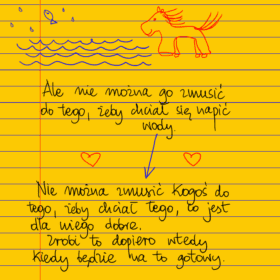 Ale nie można go zmusić
do tego, żeby chciał się napić
wody.
Nie można zmusić kogoś do
tego, żeby chciał tego, co jest
dla niego dobre.
Zrobi to dopiero wtedy
kiedy będzie na to gotowy.